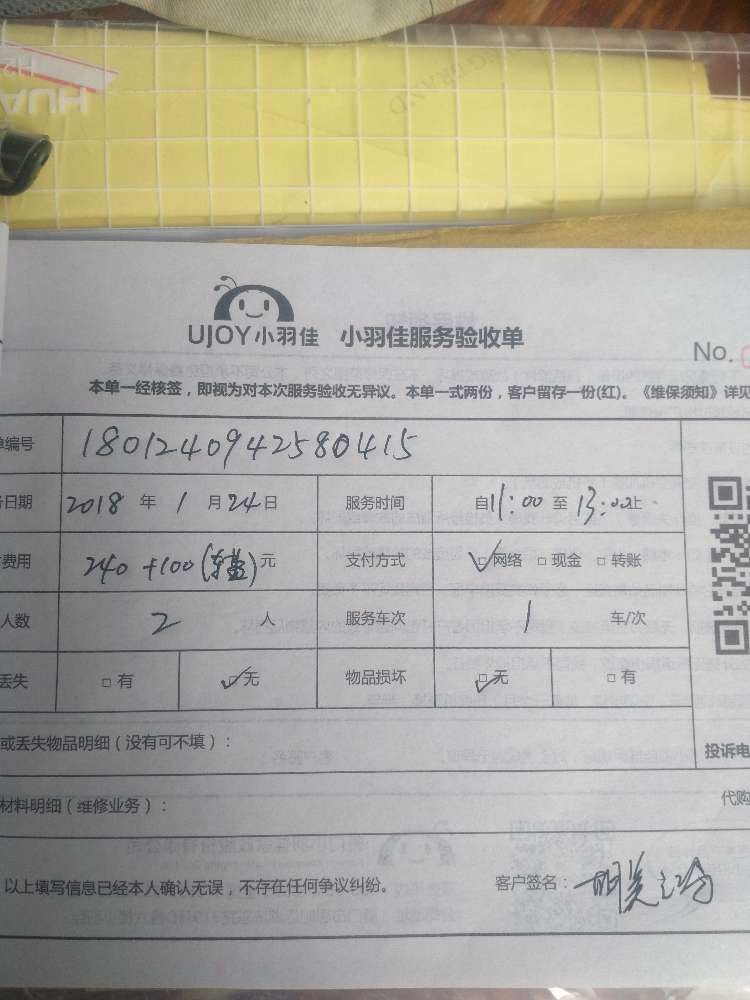 HUA
H2
UJOY小羽佳 小羽佳服务验收单
No.
本单一经核签，即视为对本次服务验收无异议。本单一式两份，客户留存一份(红)。《维保须知》详见
单编号 1801240942580415
务日期 2018 年 1 月 24 日 服务时间 自11:00 至 13:00止
费用 240 +100 元 支付方式 ☑网络 □现金 □转账
人数 2 人 服务车次 1 车/次
丢失 □有 ☑无 物品损坏 ☑无 □有
或丢失物品明细（没有可不填）：
投诉电
材料明细（维修业务）：
代购
以上填写信息已经本人确认无误，不存在任何争议纠纷。 客户签名：